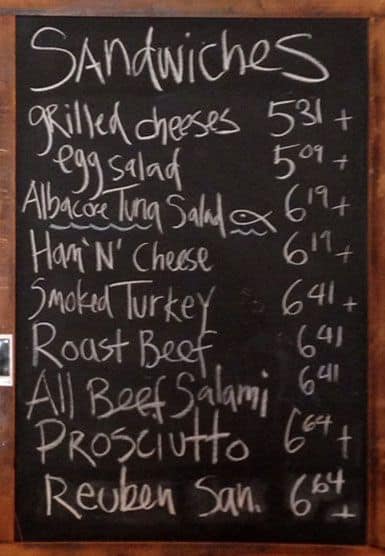 SANdwicheS
gRilled cheeses 5 31 +
egg salad 5 09 +
Albacore Tuna Salad 6 19 +
Ham 'N' Cheese 6 19 +
Smoked Turkey 6 41 +
Roast Beef 6 41
All Beef Salami 6 41
PROSCiuttO 6 64 +
Reuben San. 6 64 +